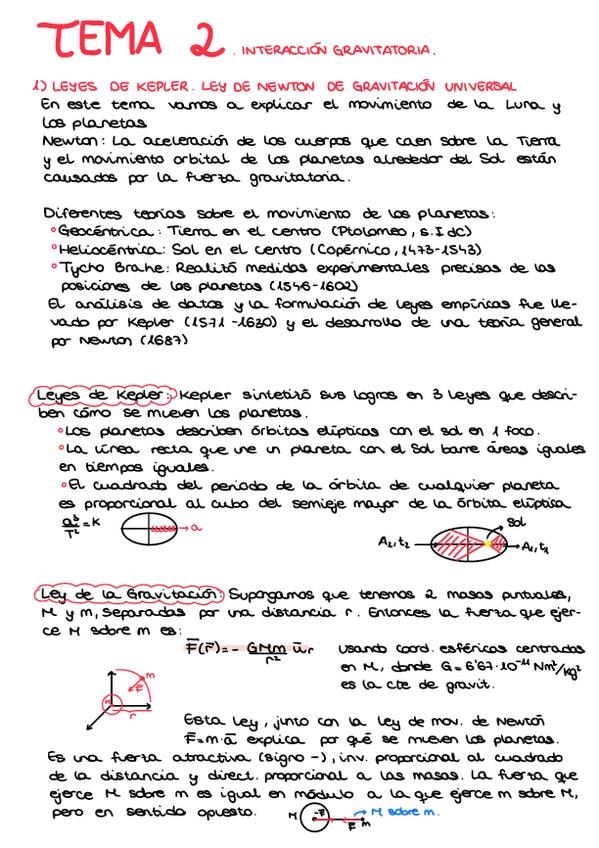 TEMA 2. INTERACCIÓN GRAVITATORIA.
1) LEYES DE KEPLER. LEY DE NEWTON DE GRAVITACIÓN UNIVERSAL
En este tema vamos a explicar el movimiento de la Luna y
los planetas
Newton: La aceleración de los cuerpos que caen sobre la Tierra
y el movimiento orbital de los planetas alrededor del Sol están
causados por la fuerza gravitatoria.
Diferentes teorías sobre el movimiento de los planetas:
° Geocéntrica: Tierra en el centro (Ptolomeo, s.I dC)
° Heliocéntrica: Sol en el centro (Copérnico, 1473-1543)
° Tycho Brahe: Realizó medidas experimentales precisas de las
posiciones de los planetas (1546-1602)
El análisis de datos y la formulación de leyes empíricas fue lle-
vado por Kepler (1571-1630) y el desarrollo de una teoría general
por Newton (1687)
Leyes de Kepler: Kepler sintetizó sus logros en 3 leyes que descri-
ben cómo se mueven los planetas.
° Los planetas describen órbitas elípticas con el sol en 1 foco.
° La línea recta que une un planeta con el Sol barre áreas iguales
en tiempos iguales.
° El cuadrado del periodo de la órbita de cualquier planeta
es proporcional al cubo del semieje mayor de la órbita elíptica
a³/T² = K
a
Sol
A₂,t₂
A₁,t₁
Ley de la Gravitación: Supongamos que tenemos 2 masas puntuales,
M y m, separadas por una distancia r. Entonces la fuerza que ejer-
ce M sobre m es:
F̄(r̄) = - GMm/r² ūr
usando coord. esféricas centradas
en M, donde G = 6'67·10⁻¹¹ Nm²/kg²
es la cte de gravit.
M
m
F̄
r
Esta ley, junto con la ley de mov. de Newton
F̄=m·ā explica por qué se mueven los planetas.
Es una fuerza atractiva (signo -), inv. proporcional al cuadrado
de la distancia y direct. proporcional a las masas. La fuerza que
ejerce M sobre m es igual en módulo a la que ejerce m sobre M,
pero en sentido opuesto.
M
-F̄
F̄
m
M sobre m.